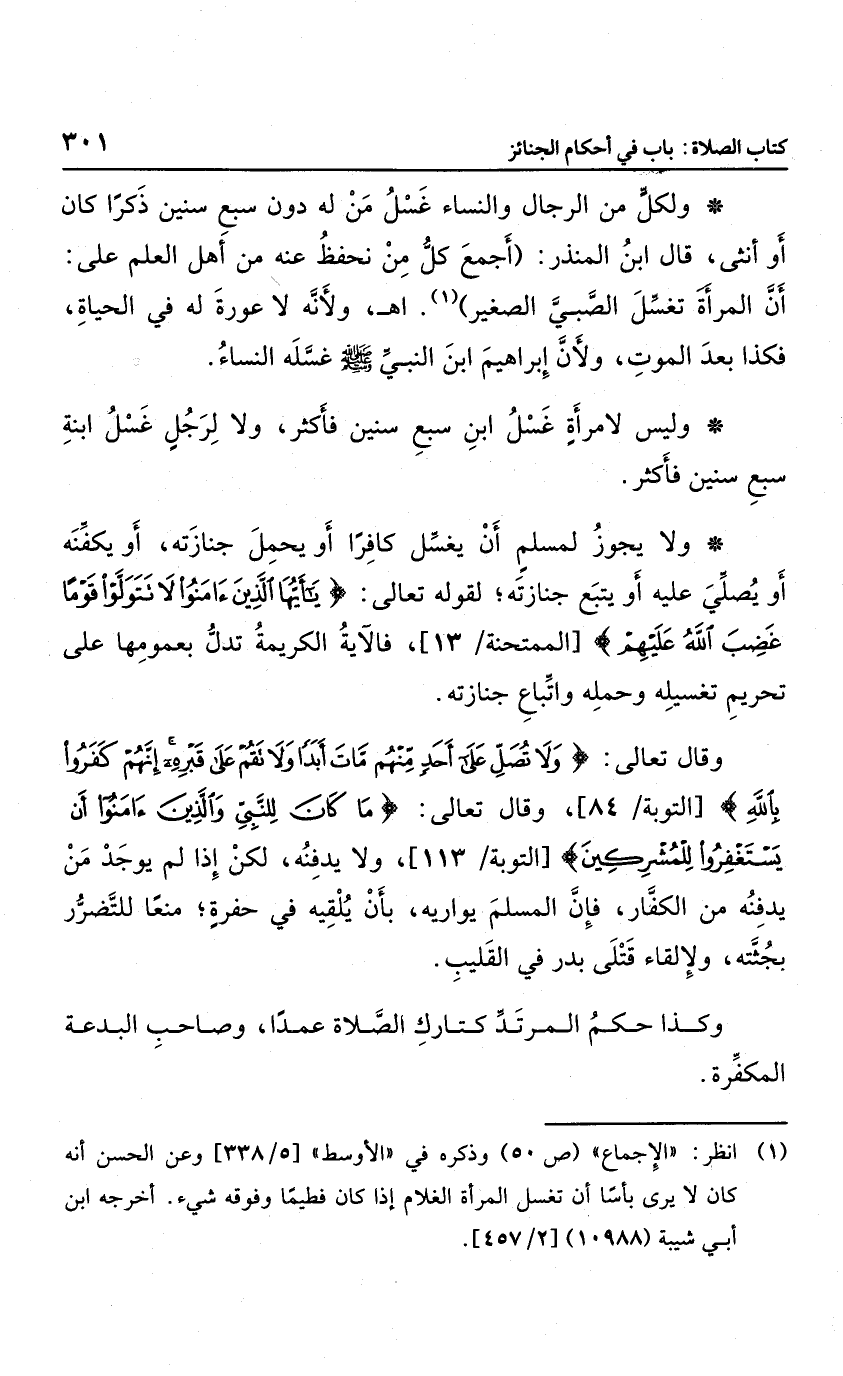 كتاب الصلاة: باب في أحكام الجنائز ٣٠١
* ولكلٍّ من الرجال والنساء غَسْلُ مَنْ له دون سبعِ سنين ذَكرًا كان
أَو أنثى، قال ابنُ المنذر: (أَجمعَ كلُّ مِنْ نحفظُ عنه من أَهل العلم على:
أَنَّ المرأَةَ تغسِّلَ الصَّبيَّ الصغير)(١). اهـ، ولأَنَّه لا عورةَ له في الحياةِ،
فكذا بعدَ الموتِ، ولأَنَّ إبراهيمَ ابنَ النبيِّ ﷺ غسَّلَه النساءُ.
* وليس لامرأَةٍ غَسْلُ ابنِ سبعِ سنين فأَكثر، ولا لِرَجُلٍ غَسْلُ ابنةِ
سبعِ سنين فأَكثر.
* ولا يجوزُ لمسلمٍ أَنْ يغسِّل كافِرًا أَو يحمِلَ جنازَته، أَو يكفِّنَه
أَو يُصلِّيَ عليه أَو يتبَع جنازتَه؛ لقوله تعالى: ﴿ يَٰٓأَيُّهَا ٱلَّذِينَ ءَامَنُوا۟ لَا تَتَوَلَّوْا۟ قَوْمًا
غَضِبَ ٱللَّهُ عَلَيْهِمْ ﴾ [الممتحنة/ ١٣]، فالآيةُ الكريمةُ تدلُّ بعمومِها على
تحريمِ تغسيلِه وحملِه واتِّباعِ جنازته.
وقال تعالى: ﴿ وَلَا تُصَلِّ عَلَىٰٓ أَحَدٍ مِّنْهُم مَّاتَ أَبَدًا وَلَا تَقُمْ عَلَىٰ قَبْرِهِۦٓ إِنَّهُمْ كَفَرُوا۟
بِٱللَّهِ ﴾ [التوبة/ ٨٤]، وقال تعالى: ﴿ مَا كَانَ لِلنَّبِيِّ وَٱلَّذِينَ ءَامَنُوٓا۟ أَن
يَسْتَغْفِرُوا۟ لِلْمُشْرِكِينَ﴾ [التوبة/ ١١٣]، ولا يدفِنُه، لكنْ إذا لم يوجَدْ مَنْ
يدفِنُه من الكفَّار، فإنَّ المسلمَ يواريه، بأَنْ يُلْقِيه في حفرةٍ؛ منعًا للتَّضرُّر
بجُثَّته، ولإلقاء قَتْلَى بدر في القَليبِ.
وكذا حكمُ المرتَدِّ كتاركِ الصَّلاة عمدًا، وصاحبِ البدعة
المكفِّرة.
(١) انظر: «الإجماع» (ص ٥٠) وذكره في «الأوسط» [٣٣٨/٥] وعن الحسن أنه
كان لا يرى بأسًا أن تغسل المرأة الغلام إذا كان فطيمًا وفوقه شيء. أخرجه ابن
أبي شيبة (١٠٩٨٨) [٤٥٧/٢].